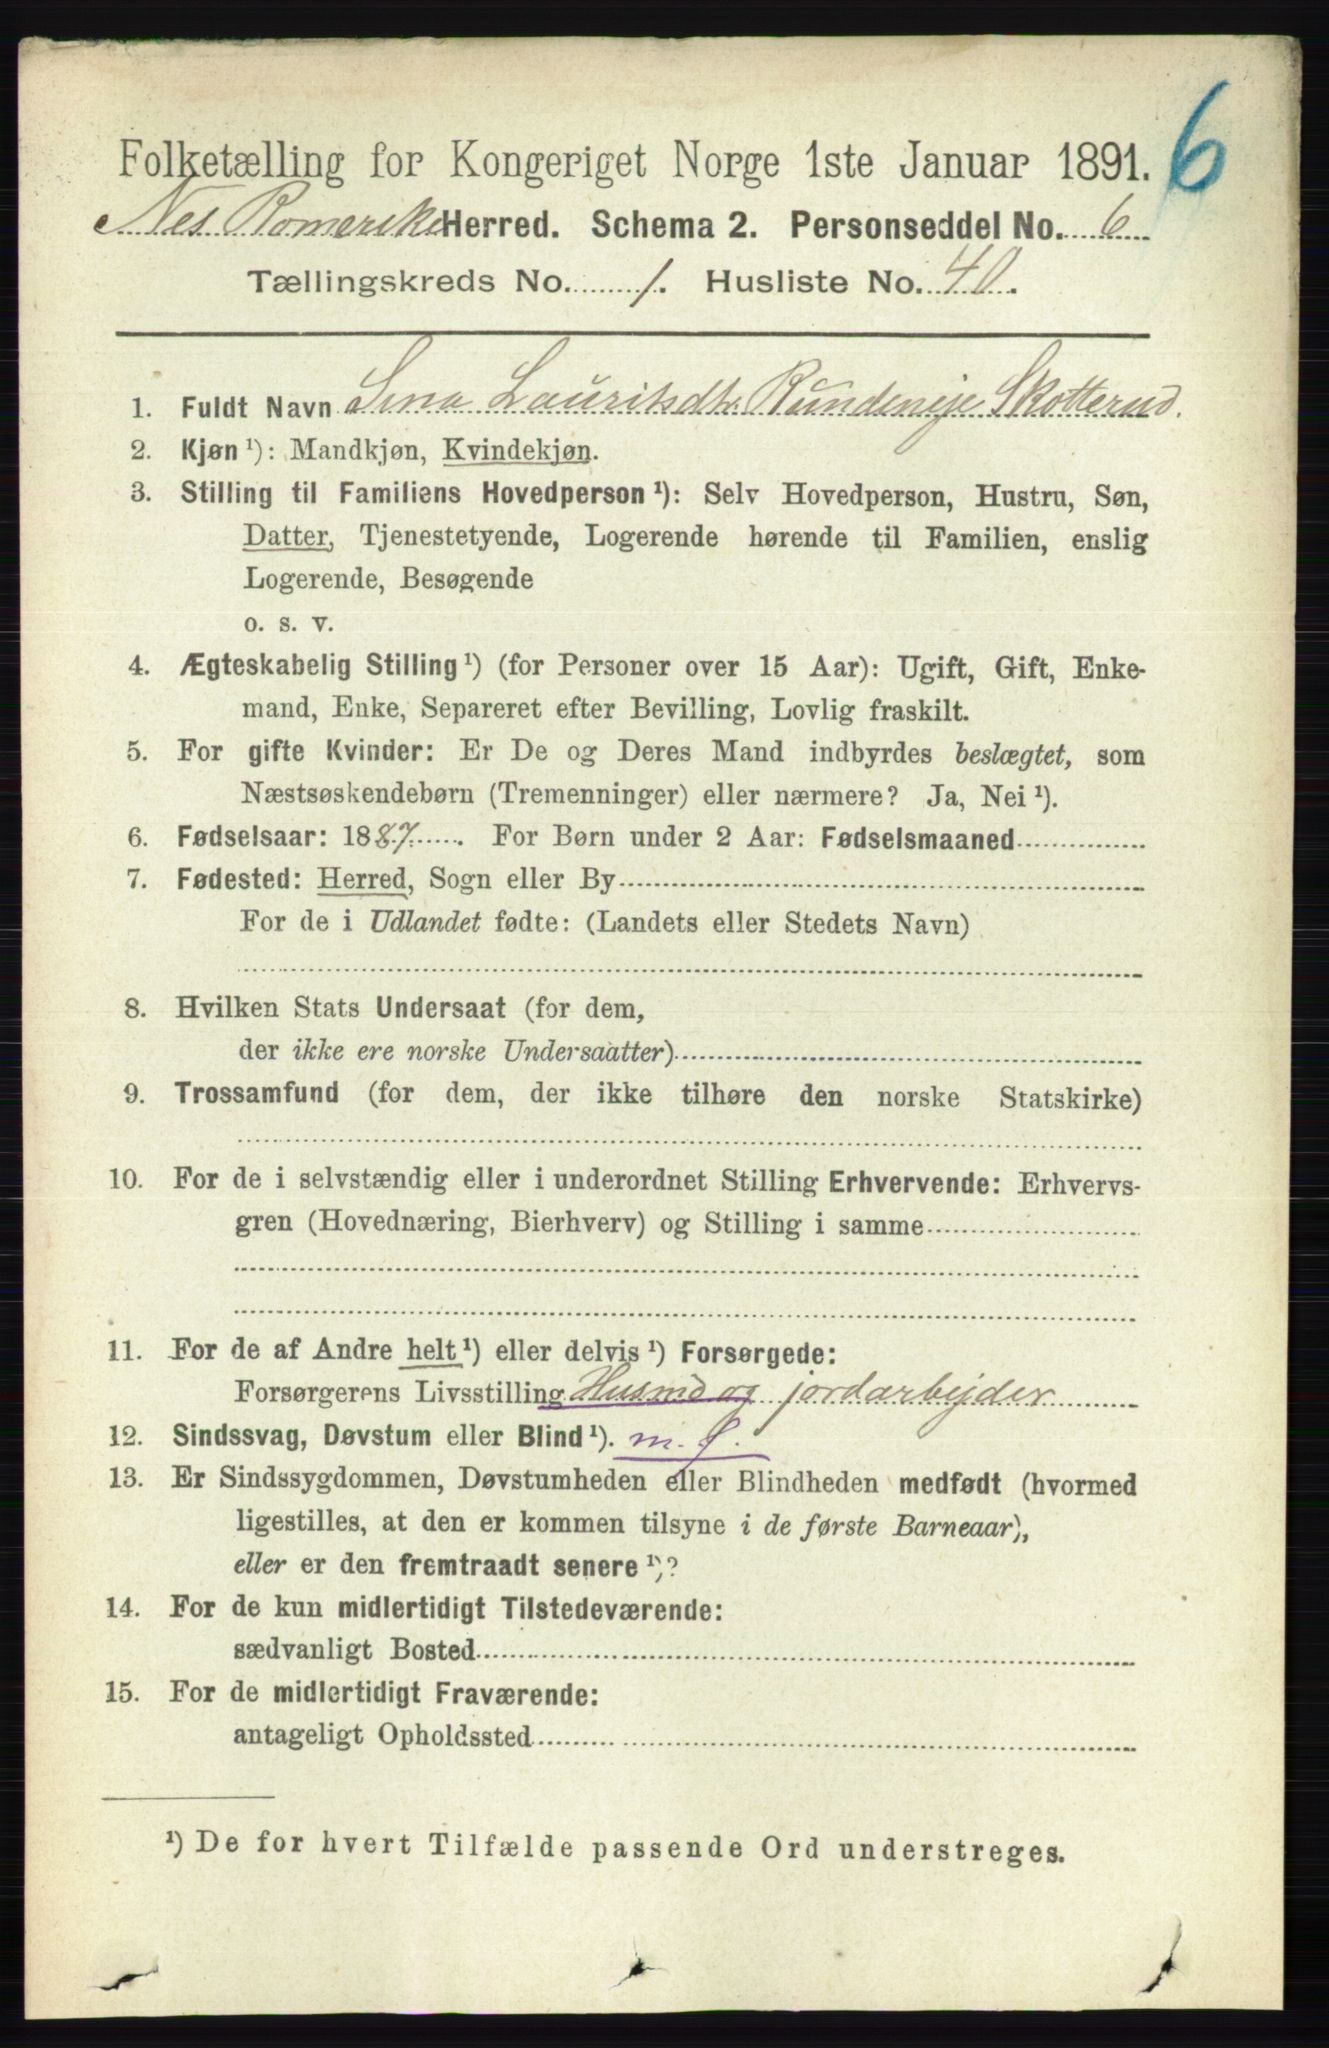 6
Folketælling for Kongeriget Norge 1ste Januar 1891.
Nes Romerike Herred. Schema 2. Personseddel No. 6
Tællingskreds No. 1. Husliste No. 40.
1. Fuldt Navn Sina Lauritsdtr. Rundeneje Skotterud.
2. Kjøn ¹): Mandkjøn, Kvindekjøn.
3. Stilling til Familiens Hovedperson ¹): Selv Hovedperson, Hustru, Søn,
Datter, Tjenestetyende, Logerende hørende til Familien, enslig
Logerende, Besøgende
o. s. v.
4. Ægteskabelig Stilling ¹) (for Personer over 15 Aar): Ugift, Gift, Enke-
mand, Enke, Separeret efter Bevilling, Lovlig fraskilt.
5. For gifte Kvinder: Er De og Deres Mand indbyrdes beslægtet, som
Næstsøskendebørn (Tremenninger) eller nærmere? Ja, Nei ¹).
6. Fødselsaar: 1887. For Børn under 2 Aar: Fødselsmaaned
7. Fødested: Herred, Sogn eller By
For de i Udlandet fødte: (Landets eller Stedets Navn)
8. Hvilken Stats Undersaat (for dem,
der ikke ere norske Undersaatter)
9. Trossamfund (for dem, der ikke tilhøre den norske Statskirke)
10. For de i selvstændig eller i underordnet Stilling Erhvervende: Erhvervs-
gren (Hovednæring, Bierhverv) og Stilling i samme
11. For de af Andre helt ¹) eller delvis ¹) Forsørgede:
Forsørgerens Livsstilling Husmd og jordarbejder
12. Sindssvag, Døvstum eller Blind ¹). m. J.
13. Er Sindssygdommen, Døvstumheden eller Blindheden medfødt (hvormed
ligestilles, at den er kommen tilsyne i de første Barneaar),
eller er den fremtraadt senere ¹)?
14. For de kun midlertidigt Tilstedeværende:
sædvanligt Bosted
15. For de midlertidigt Fraværende:
antageligt Opholdssted
¹) De for hvert Tilfælde passende Ord understreges.